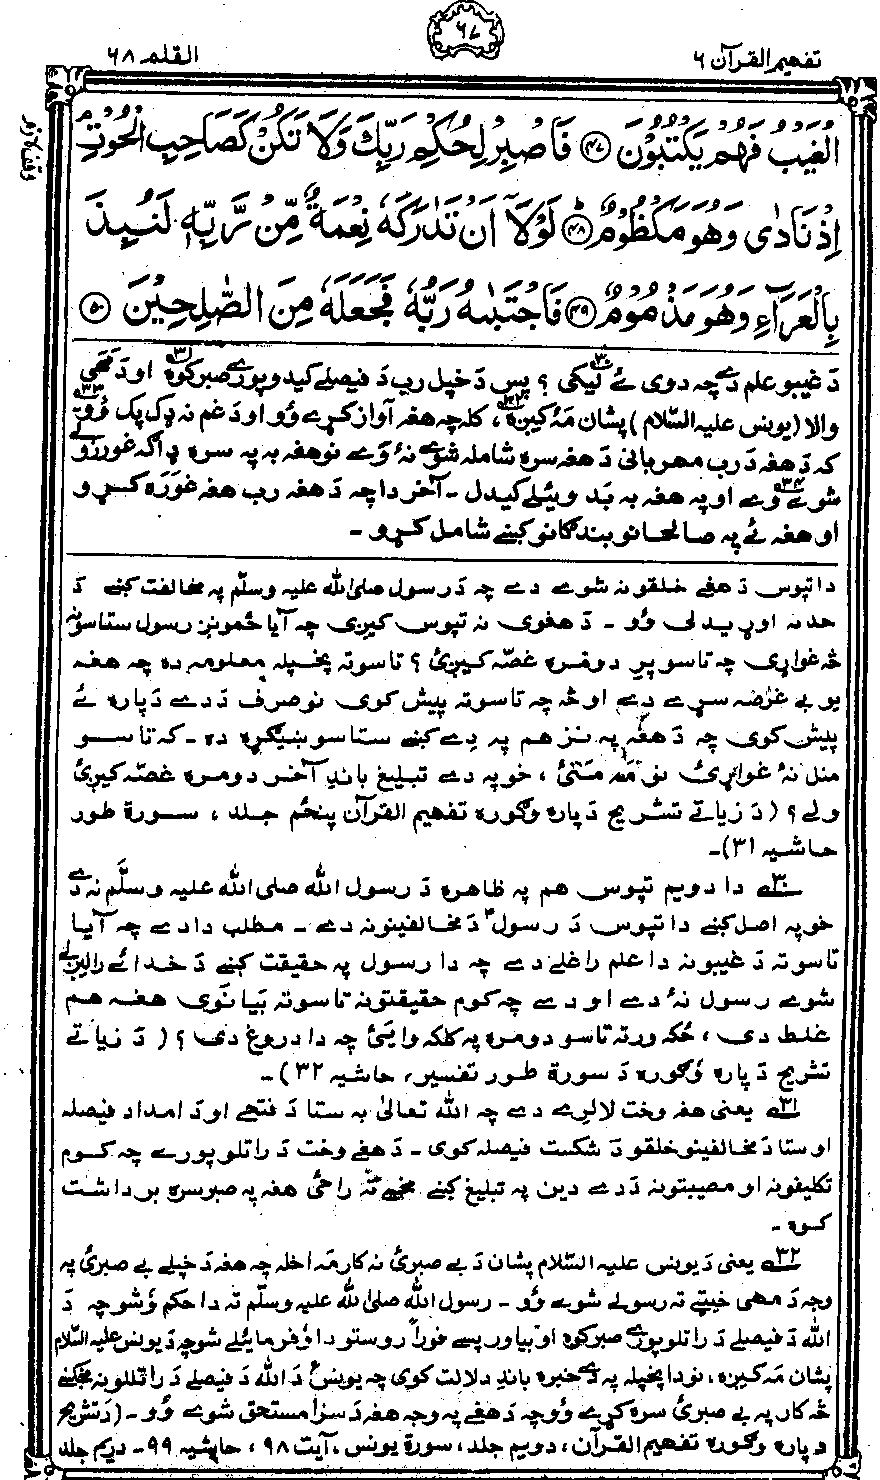 تفهیم القرآن ۶
۶۷
القلم ۶۸
الْغَيْبُ فَهُمْ يَكْتُبُوْنَ ﴿۴۷﴾ فَاصْبِرْ لِحُكْمِ رَبِّكَ وَلَا تَكُنْ كَصَاحِبِ الْحُوْتِ
اِذْ نَادٰى وَهُوَ مَكْظُوْمٌ ﴿۴۸﴾ لَوْلَآ اَنْ تَدٰرَكَهٗ نِعْمَةٌ مِّنْ رَّبِّهٖ لَنُبِذَ
بِالْعَرَآءِ وَهُوَ مَذْمُوْمٌ ﴿۴۹﴾ فَاجْتَبٰىهُ رَبُّهٗ فَجَعَلَهٗ مِنَ الصّٰلِحِيْنَ ﴿۵۰﴾
دَ غیبو علم دے چہ دوی ئے لیکی ؟ پس دَ خپل رب دَ فیصلے کیدو پورے صبر کوہ اودَ مهی
والا (یونس علیہ السّلام) پشان مَۂ کیږہ، کلہ چہ هغہ آواز کړے وُو اودَ غم نہ ډک وُو
کہ دَ هغہ دَ رب مهربانی دَ هغہ سرہ شاملہ شوے نۂ وَے نو هغہ بہ پہ سرہ ډاګہ غورزولے
شوے وے او پہ هغہ بہ بَد ویئلے کیدل ۔ آخر دا چہ دَ هغہ رب هغہ غورہ کړو
او هغہ ئے پہ صالحانو بندګانو کښے شامل کړو ۔
دا تپوس دَ هغے خلقو نہ شوے دے چہ دَ رسول صلی اللہ علیہ وسلّم پہ مخالفت کښے دَ
حد نہ اوړیدلی وُو ۔ دَ هغوی نہ تپوس کیږی چہ آیا ځمونږ رسول ستاسو نہ
څہ غواړی چہ تاسو پرِ دومرہ غصّہ کیږئ ؟ تاسو تہ پخپلہ معلومہ دہ چہ هغہ
یو بے غرضہ سړے دے او څہ چہ تاسو تہ پیش کوی نو صرف دَ دے دَ پارہ ئے
پیش کوی چہ دَ هغہ پہ نزد هم پہ دے کښے ستاسو ښیګړہ دہ ۔ کہ تاسو
منل نۂ غواړئ نو مَہ مَنئ ، خو پہ دے تبلیغ باندِ آخر دومرہ غصّہ کیږئ
ولے ؟ ( دَ زیاتے تشریح دَ پارہ وګورہ تفهیم القرآن پنځم جلد ، سورۃ طور
حاشیہ ۳۱)۔
۳۰ دا دویم تپوس هم پہ ظاهرہ دَ رسول اللہ صلی اللہ علیہ وسلّم نہ دے
خو پہ اصل کښے دا تپوس دَ رسولؐ دَ مخالفینو نہ دے ۔ مطلب دا دے چہ آیا
تاسو تہ دَ غیبو نہ دا علم راغلے دے چہ دا رسول پہ حقیقت کښے دَ خدائے رالیږلے
شوے رسول نۂ دے او دے چہ کوم حقیقتونہ تاسو تہ بیانوی هغہ هم
غلط دی ، ځکہ ورتہ تاسو دومرہ پہ کلکہ وایئ چہ دا دروغ دی ؟ ( دَ زیاتے
تشریح دَ پارہ وُګورہ دَ سورۃ طور تفسیر، حاشیہ ۳۲)۔
۳۱ یعنی هغہ وخت لا لرے دے چہ اللہ تعالیٰ بہ ستا دَ فتحے اودَ امداد فیصلہ
او ستا دَ مخالفینو خلقو دَ شکست فیصلہ کوی ۔ دَ هغے وخت دَ راتلو پورے چہ کوم
تکلیفونہ او مصیبتونہ دَ دے دین پہ تبلیغ کښے مخے تہ راځی هغہ پہ صبر سرہ برداشت
کوہ ۔
۳۲ یعنی دَ یونس علیہ السّلام پشان دَ بے صبرئ نہ کار مَہ اخلہ چہ هغہ دَ خپلے بے صبرئ پہ
وجہ دَ مهی خیټے تہ رسولے شوے وُو ۔ رسول اللہ صلی اللہ علیہ وسلّم تہ دا حکم وُشو چہ دَ
اللہ دَ فیصلے دَ راتلو پورے صبر کوہ او بیا ورپسے فوراً روستو دا وُفرمایئلے شو چہ دَ یونس علیہ السّلام
پشان مَہ کیږہ، نو دا پخپلہ پہ دے خبرہ باندِ دلالت کوی چہ یونسؑ دَ اللہ دَ فیصلے دَ راتللو نہ مخکښے
څہ کار پہ بے صبرئ سرہ کړے وُو چہ دَ هغے پہ وجہ هغہ دَ سزا مستحق شوے وُو ۔ (دَ تشریح
دَ پارہ وګورہ تفهیم القرآن، دویم جلد، سورۃ یونس، آیت ۹۸، حاشیہ ۹۹۔ دریم جلد